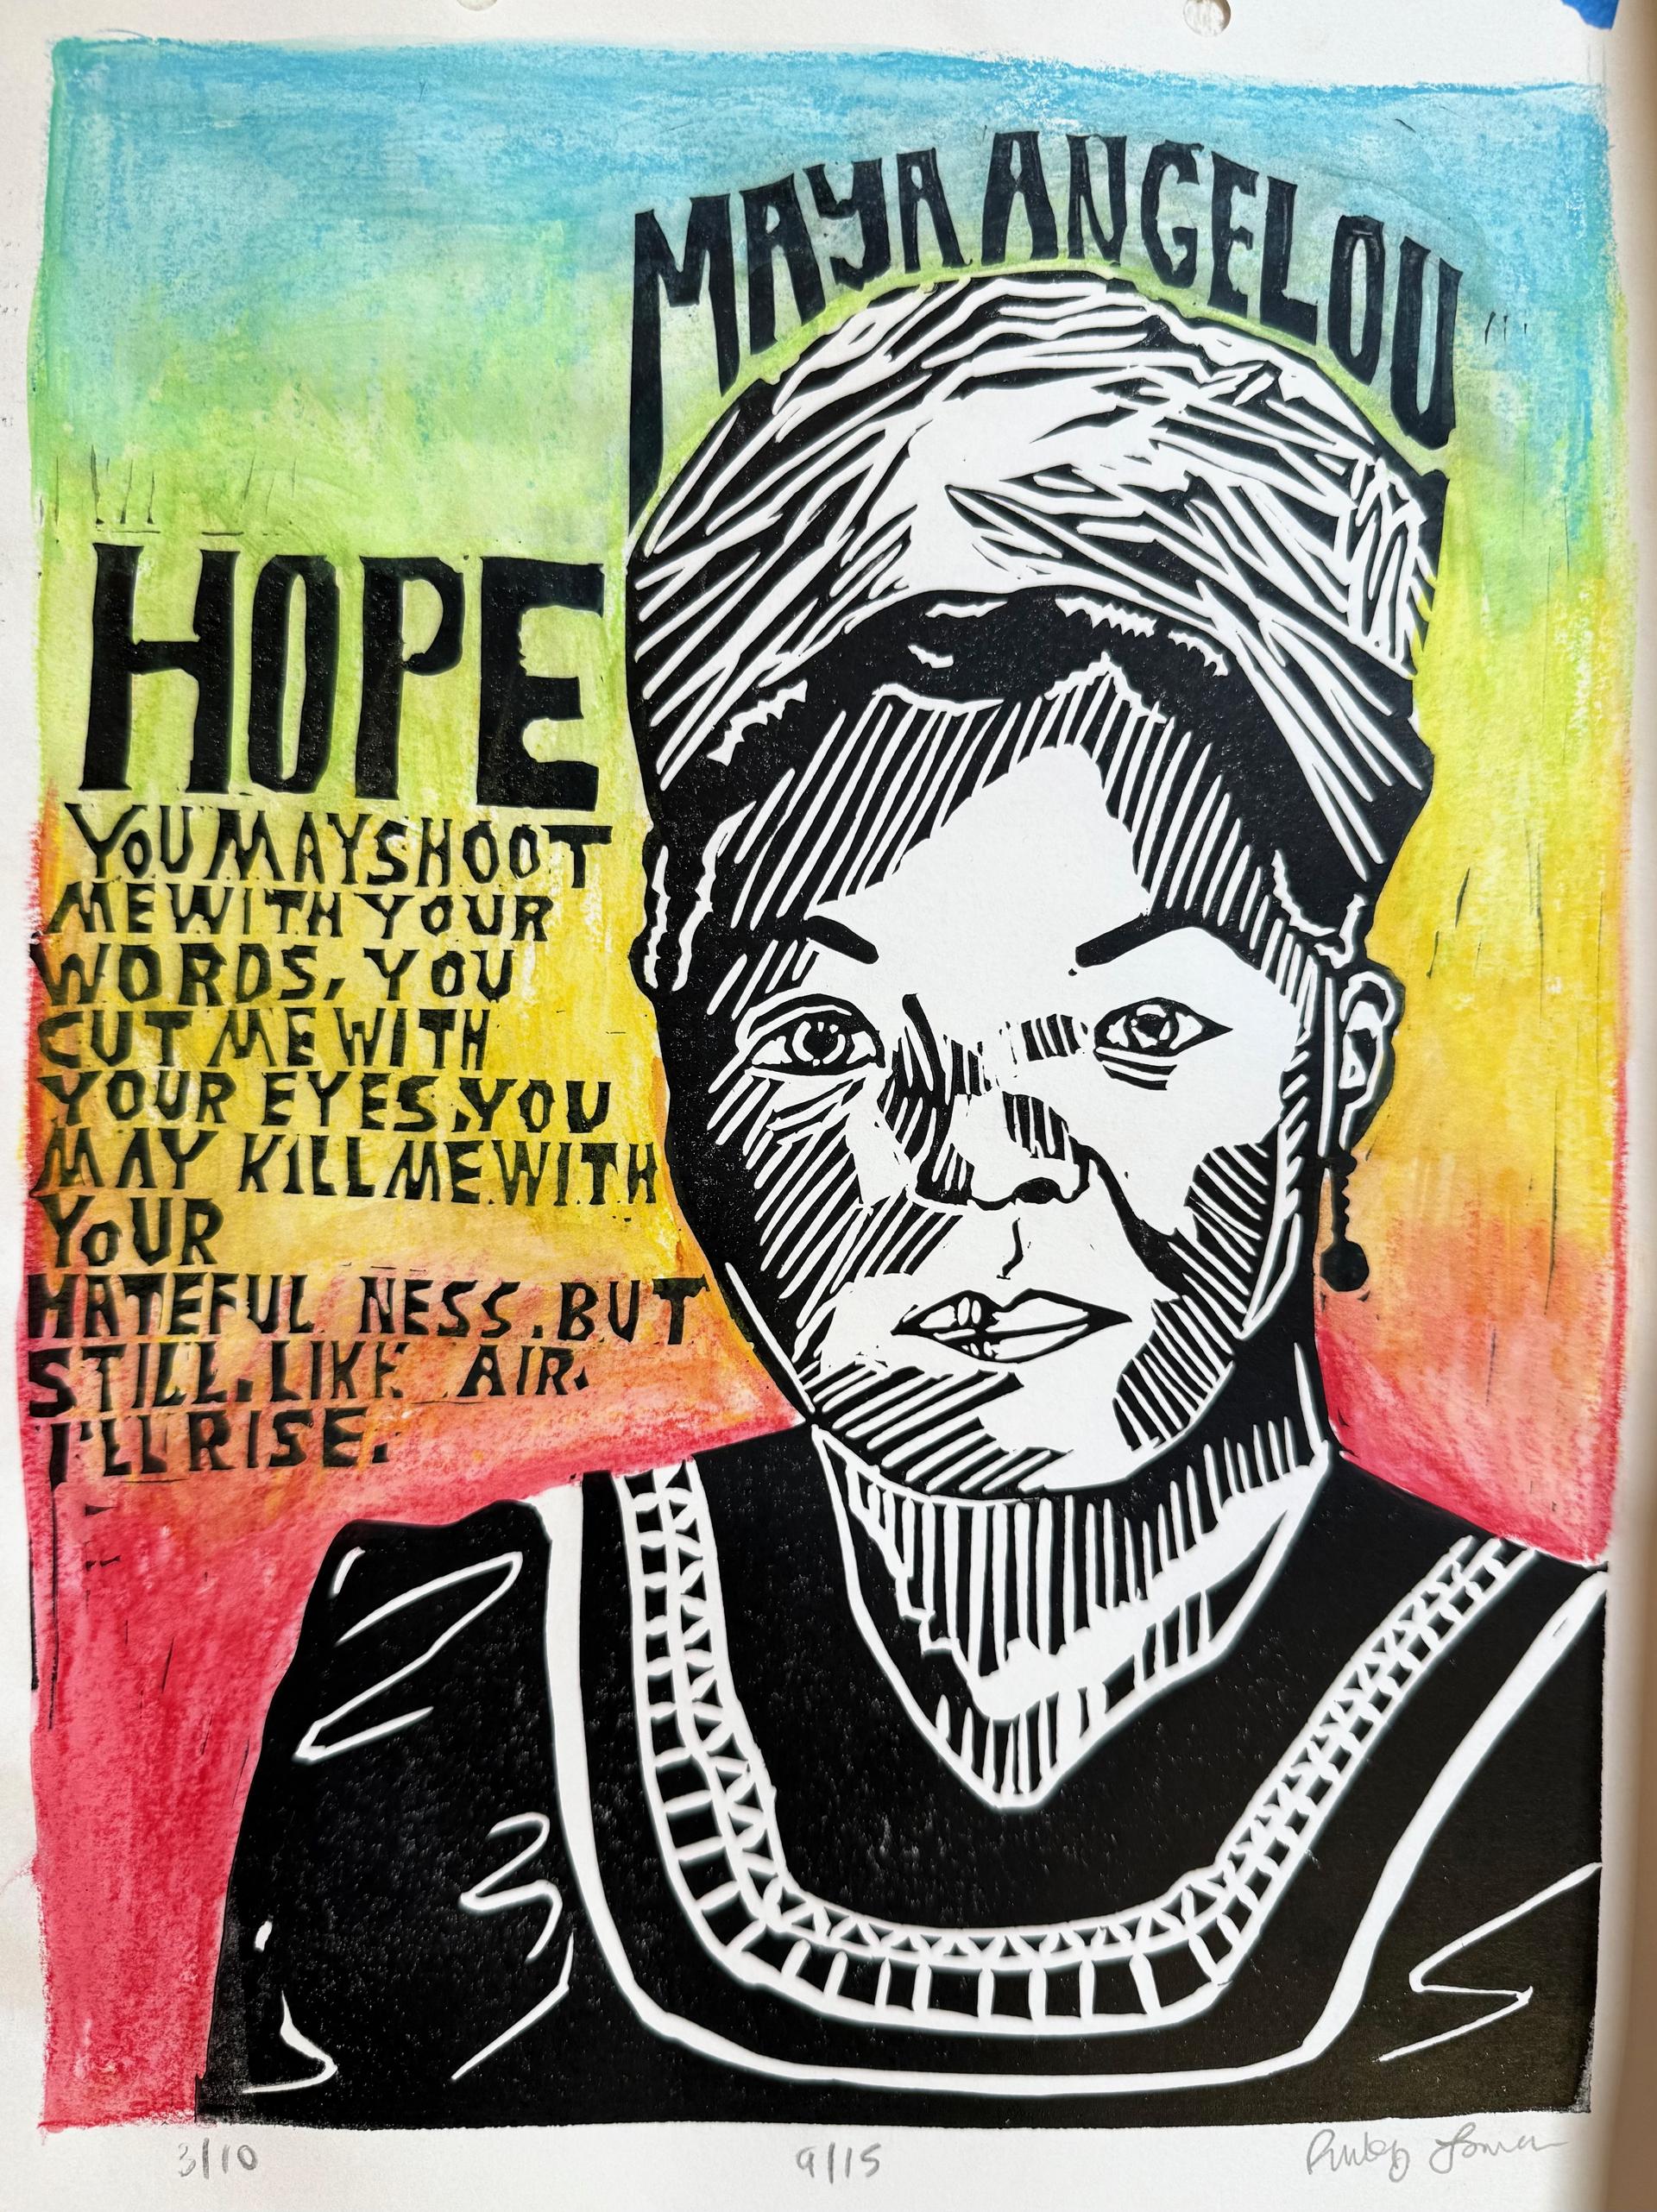 MAYA ANGELOU
HOPE
YOU MAY SHOOT
ME WITH YOUR
WORDS, YOU
CUT ME WITH
YOUR EYES, YOU
MAY KILL ME WITH
YOUR
HATEFUL NESS. BUT
STILL. LIKE AIR.
I'LL RISE.
3/10
9/15